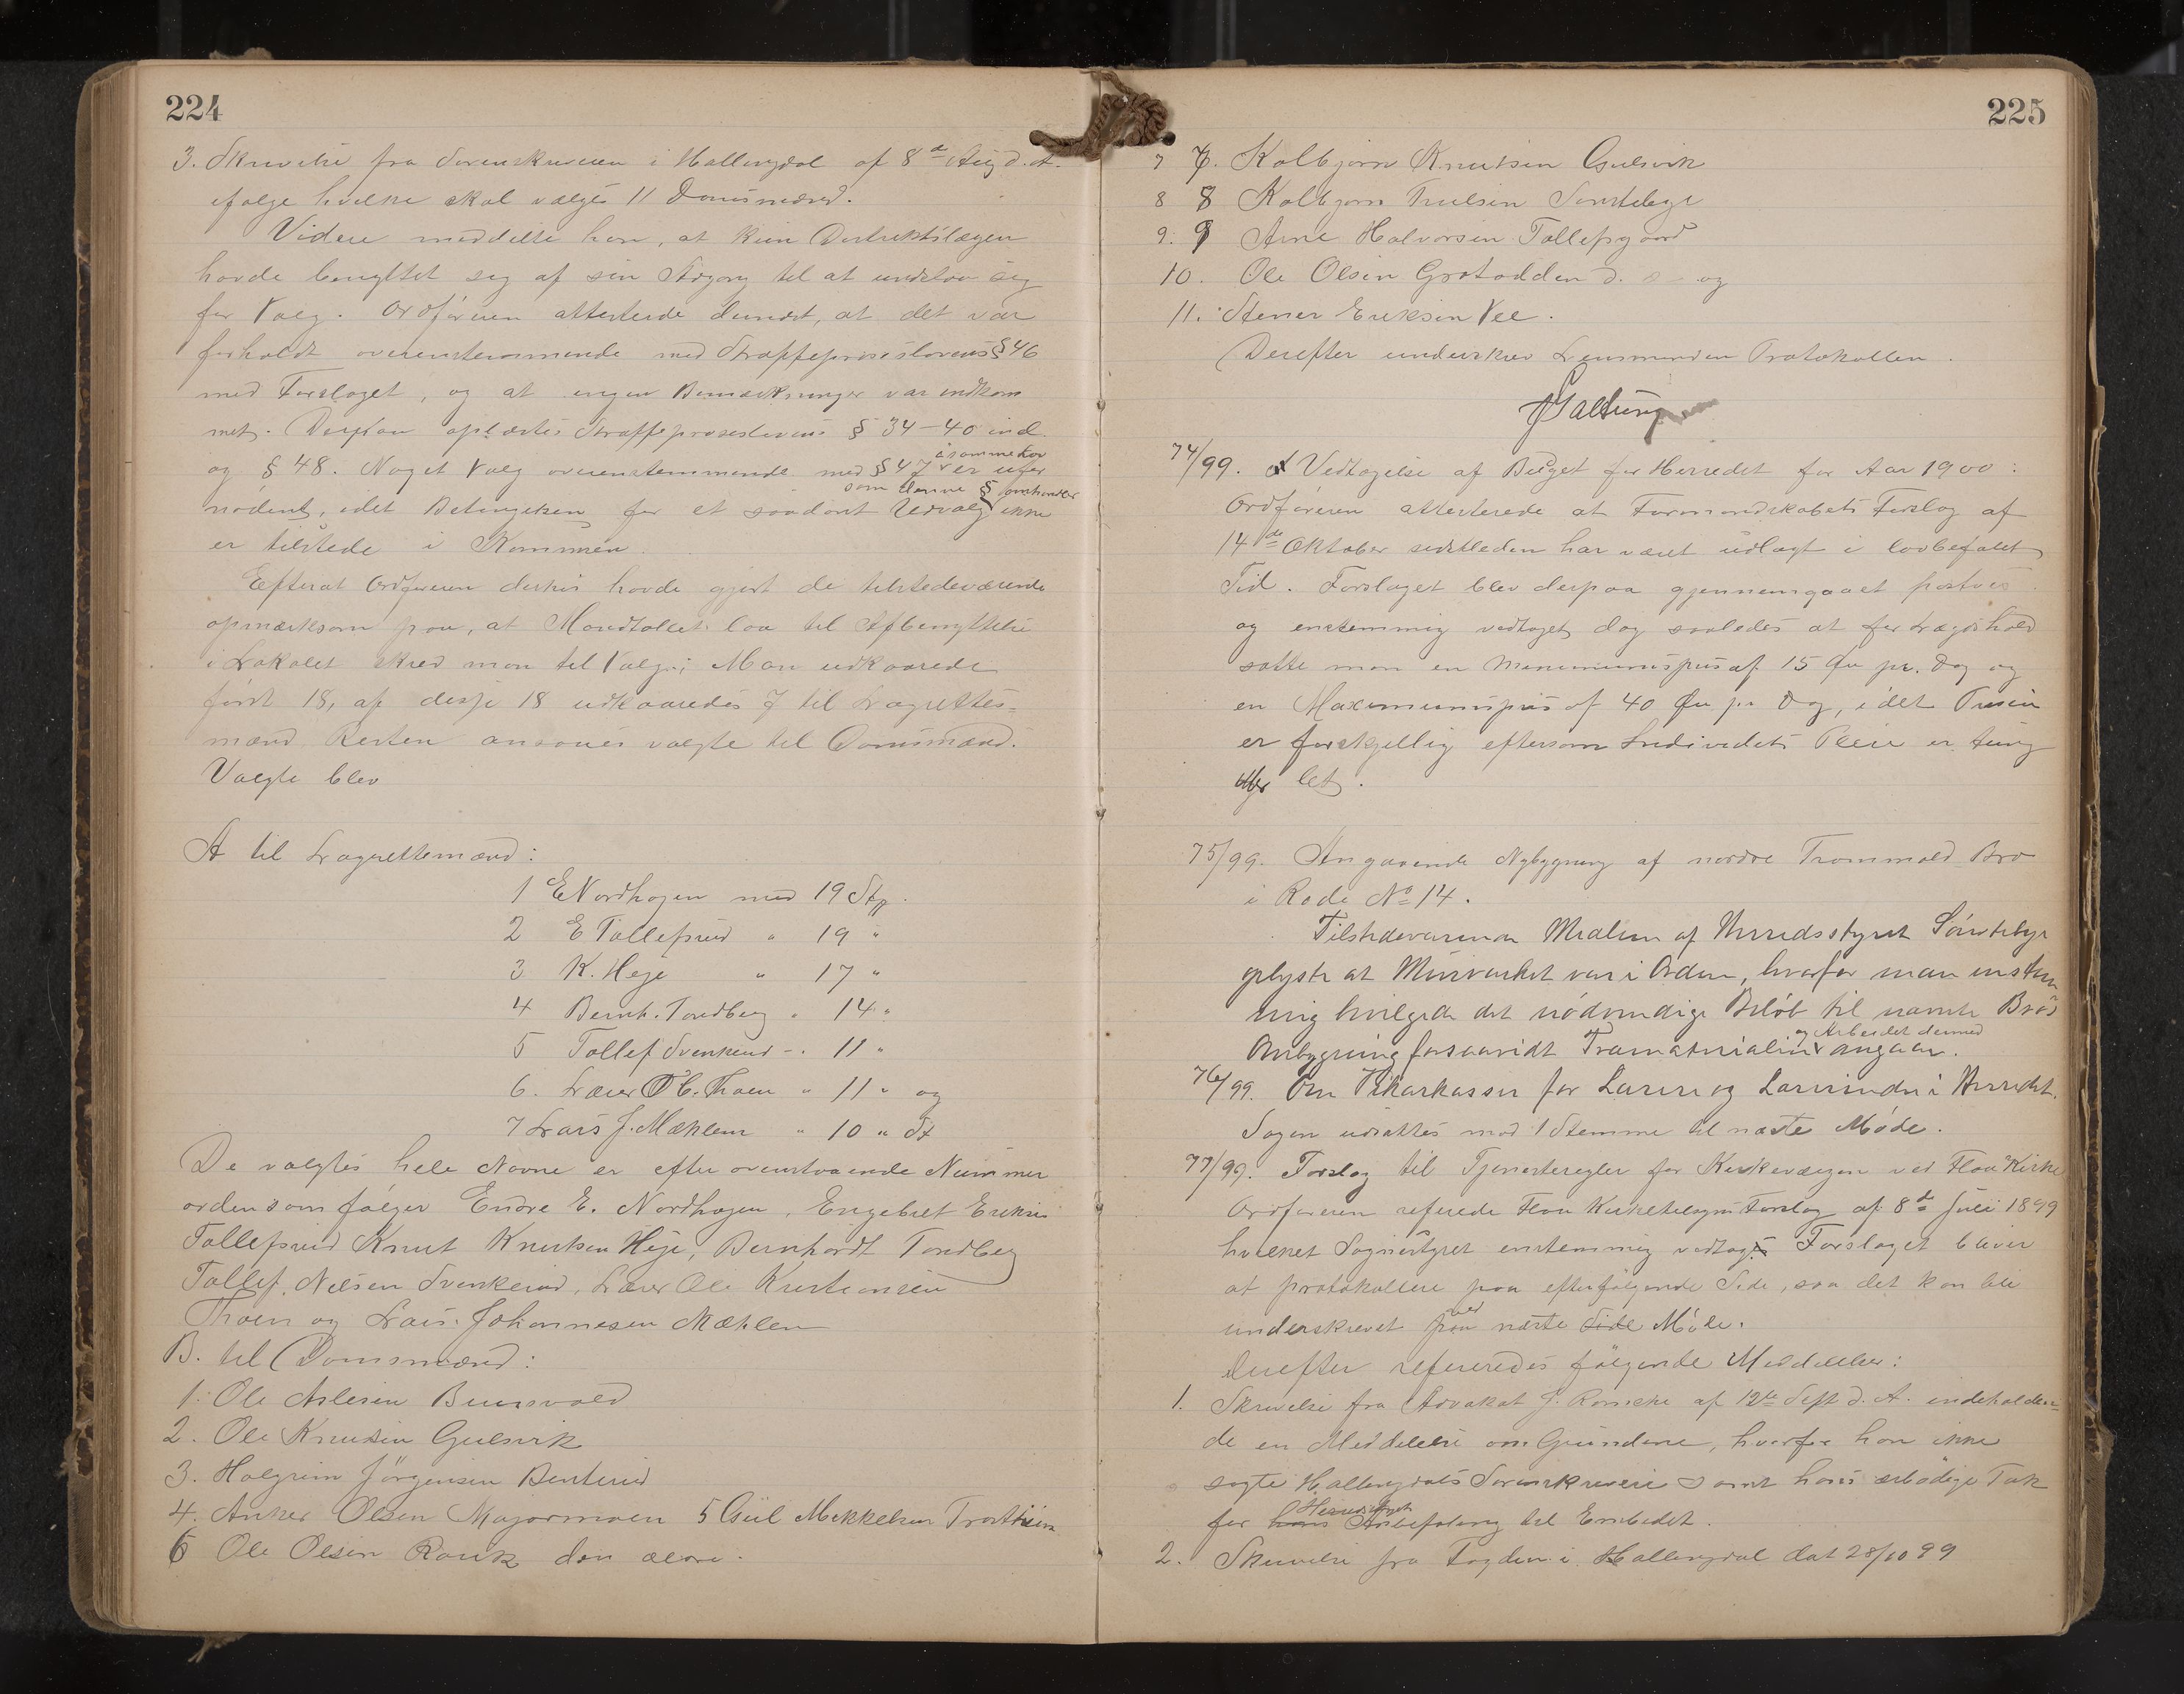 224
3. Skrivelse fra Sorenskriveren i Hallingdal af 8de Aug d. A.
ifølge hvilke skal vælges 11 Domsmænd.
Videre meddelte han, at kun Distriktslægen
havde benyttet sig af sin Adgang til at undslaa sig
for Valg. Ordføreren attesterede dernæst, at det var
forholdt overensstemmende med Straffeprosesslovens § 46
med Forslaget, og at ingen Bemærkninger var indkom
met. Derpaa oplæstes Straffeproseslovens § 34–40 incl.
og § 48. Noget Valg overensstemmende med § 47 i samme Lov er ufor
nødent, idet Betingelsen for et saadant Udvalg som denne § omhandler ikke
er tilstede i Kommunen.
Efterat Ordføreren derhos havde gjort de tilstedeværende
opmærksom paa, at Mandtallet laa til Afbenyttelse
i Lokalet skred man til Valget; Man udkaarede
først 18, af disse 18 udkaaredes 7 til Lagrettes-
mænd Resten ansaaes valgte til Domsmænd.
Valgte blev
A til Lagrettemænd:
1 E Nordhagen med 19 St.
2 E Tollefsrud " 19 "
3 K. Heje " 17 "
4 Bernh. Tondberg " 14 "
5 Tollef Svenkerud - . 11 "
6. Lærer O K. Thoen " 11 " og
7 Lars J. Mæhlem " 10 " St
De valgtes hele Navne er efter ovenstaaende Nummer
orden som følger Endre E. Nordhagen, Engebret Eriksen
Tollefsrud Knut Knutsen Heje, Bernhardt Tondberg
Tollef Nilsen Svenkerud, Lærer Ole Kristiansen
Thoen og Lars Johannesen Mæhlem
B. til Domsmænd:
1. Ole Aslesen
2. Ole Knutsen Gulsvik
3. Halgrim Jörgensen
4. Anker Olsen 5 Gul Mekkelsen Trostheim
6 Ole Olsen Rouk den ældre.
225
7 7. Kolbjørn Knutsen Gulsvik
8 8 Kolbjørn Trulsen Sørstebye
9. 9 Arne Halvorsen Tollefsgaard
10. Ole Olsen Grotodden d. og
11. Stener Eriksen Vee.
Derefter underskrev Lensmanden Protokollen.
74/99. Vedtagelse af Budget for Herredet for Aar 1900:
Ordføreren attesterede at Formandskabets Forslag af
14de Oktober sidstleden har været udlagt i lovbefalet
Tid. Forslaget blev derpaa gjennemgaaet postvis
og enstemmig vedtaget dog saaledes at for Lægdshold
satte man en Menimumspris af 15 Øre pr. Dag og
en Maximumspris af 40 Øre pr Dag, idet Prisen
er forskjellig eftersom Individets Pleie er tung
eller let.
75/99. Angaaende Nybygning af nordre Trommald Bro
i Rode No 14.
Tilstedeværende Medlem af Herredsstyret Sörstebye
oplyste at Murværket var i Orden, hvorfor man enstem
mig bevilgede det nödvendige Belöb til nævnte Bros
Ombygning forsaavidt Træmaterialier og Arbeidet dermed angaar.
76/99. Om Vikarkasser for Lærere og Lærerinder i Herredet.
Sagen udsattes mod 1 Stemme til næste Møde.
77/99. Forslag til Tjenesteregler for Kirkevergen ved Flaa Kirke
Ordføreren refererede Flaa Kirketilsyns Forslag af 8de Juli 1899
hvilket Sognestyret enstemmig vedtog. Forslaget bliver
at protokollere paa efterfølgende Side, saa det kan bli
underskrevet paa ved næste Side Möde.
Derefter refereredes følgende Meddelelser:
1. Skrivelse fra Advokat J. Romcke af 12te Sept d. A. indeholden-
de en Meddelelse om Grundene, hvorfor han ikke
søgte Hallingdals Sorenskriveri samt hans ærbødige Tak
for hans Herredsstyrets Anbefaling til Embedet.
2. Skrivelse fra Fogden i Hallingdal dat 28/10 99